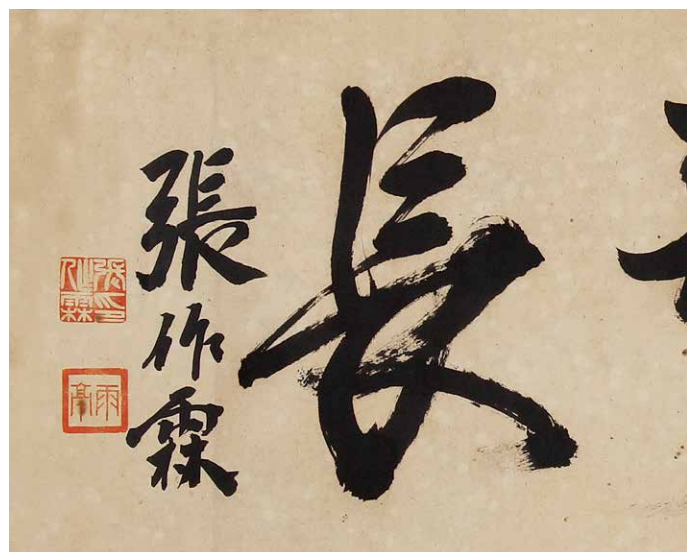 長
張作霖
張作霖印
雨亭